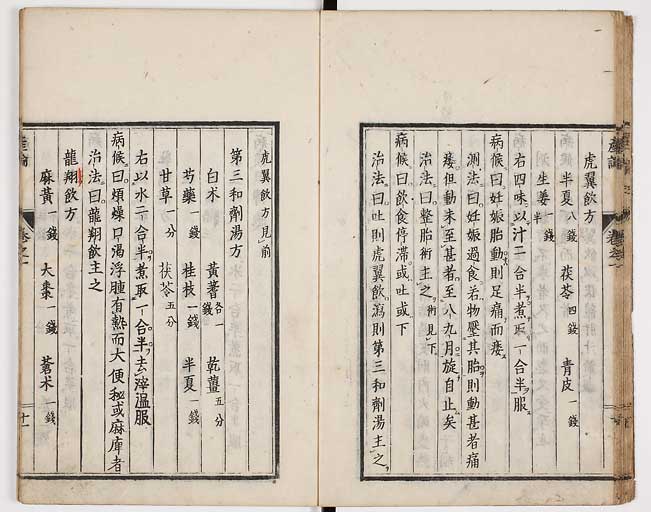 虎翼飲方
半夏八錢 茯苓四錢 青皮一錢
生姜一錢半
右四味以汁二合半煮取一合半服
病候曰妊娠胎動則足痛而痿
測法曰妊娠過食若物壓其胎則動甚者痛
痿但動未至甚者至八九月旋自止矣
治法曰整胎術主之術見下
病候曰飲食停滯或吐或下
治法曰吐則虎翼飲瀉則第三和劑湯主之
虎翼飲方見前
第三和劑湯方
白朮 黃耆各一錢 乾薑五分
芍藥一錢 桂枝一錢 半夏一錢
甘草一分 茯苓五分
右以水二合半煮取一合半去滓溫服
病候曰煩燥口渴浮腫有熱而大便秘或麻痺者
治法曰龍翔飲主之
龍翔飲方
麻黃一錢 大棗一錢 蒼朮一錢
產論
卷之一
十一